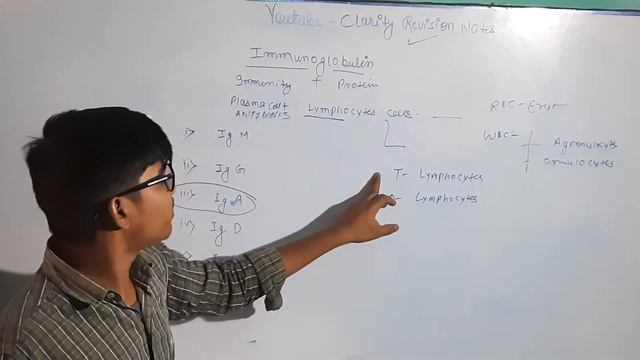 Youtube - Clarity Revision Notes
Immunoglobulin
Immunity + Protein
Plasma cell
ANTIBODIES
Lymphocytes cells.
RBC-
WBC- Agranulocyts
Granulocytes
T- Lymphocytes
Lymphocytes
i) Ig M
ii) Ig G
iii) Ig A
iv) Ig D